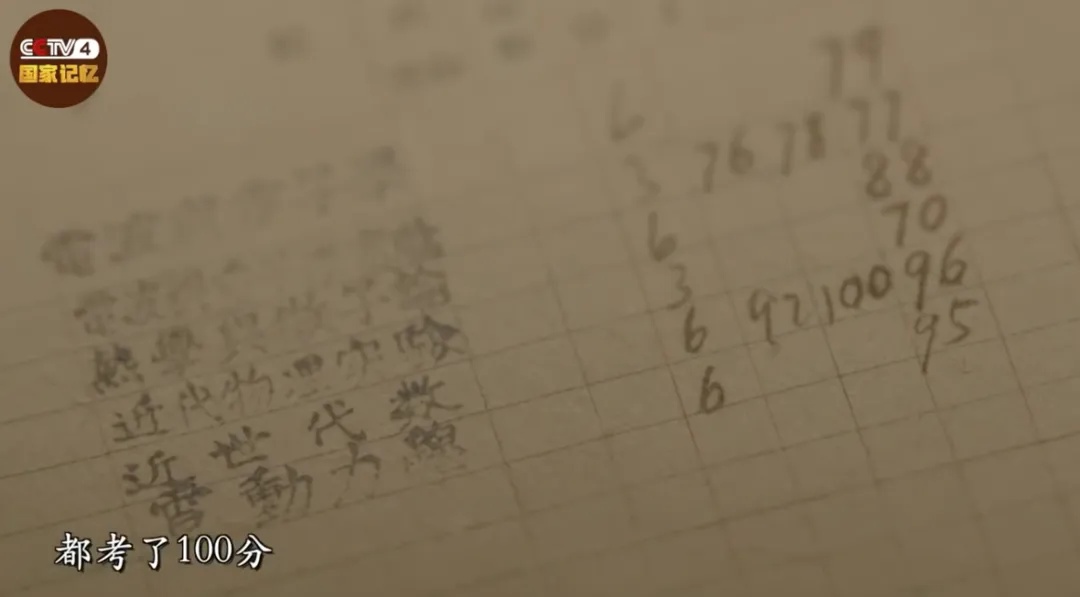 CCTV 4
国家记忆
6 79
3 76 78 77
熱學 子論 6 88
近代物理实驗 3 70
近世代数 6 92 100 96
電動力 6 95
都考了100分